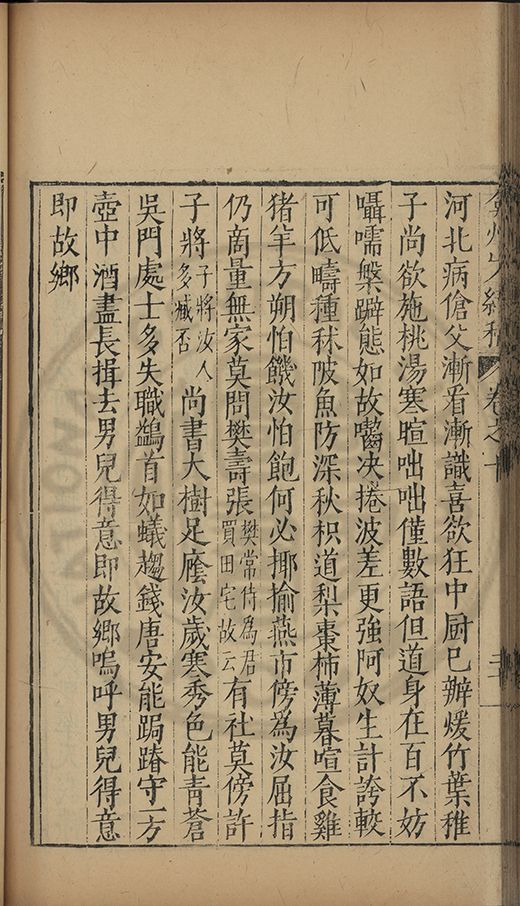 弇州史續稿 卷之十
河北病傖父漸看漸識喜欲狂中厨已辦煖竹葉稚
子尚欲施桃湯寒暄咄咄僅數語但道身在百不妨
囁嚅槃躃態如故嚙决捲波差更強阿奴生計誇較
可低疇種秫陂魚防深秋枳道梨棗柿薄暮喧食雞
猪羊方朔怕饑汝怕飽何必揶揄燕市傍為汝屈指
仍商量無家莫問樊壽張樊常侍為君買田宅故云有社莫傍許
子將子將汝人多臧否尚書大樹足廕汝歲寒秀色能青蒼
吳門處士多失職鷁首如蟻趨錢唐安能跼蹐守一方
壺中酒盡長揖去男兒得意即故鄉嗚呼男兒得意
即故鄉